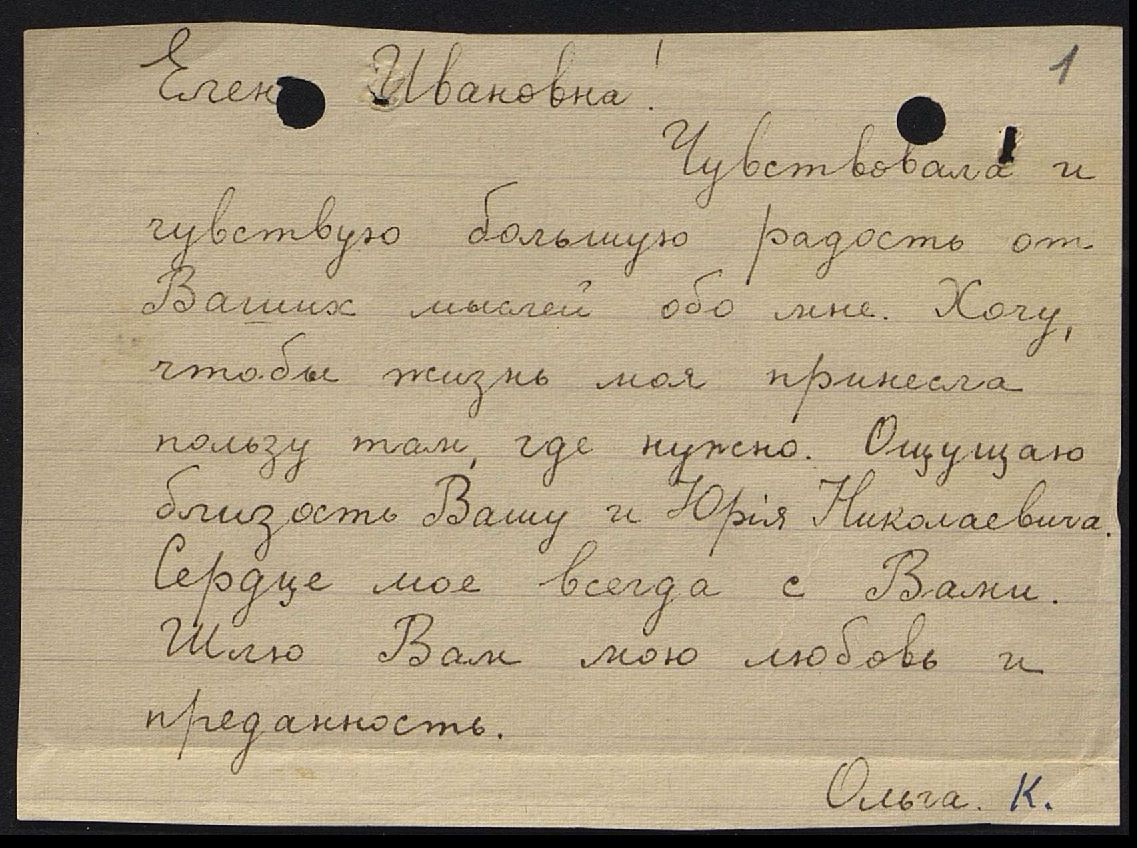 1
Елена Ивановна!
Чувствовала и
чувствую большую радость от
Ваших мыслей обо мне. Хочу,
чтобы жизнь моя принесла
пользу там, где нужно. Ощущаю
близость Вашу и Юрія Николаевича.
Сердце мое всегда с Вами.
Шлю Вам мою любовь и
преданность.
Ольга. К.